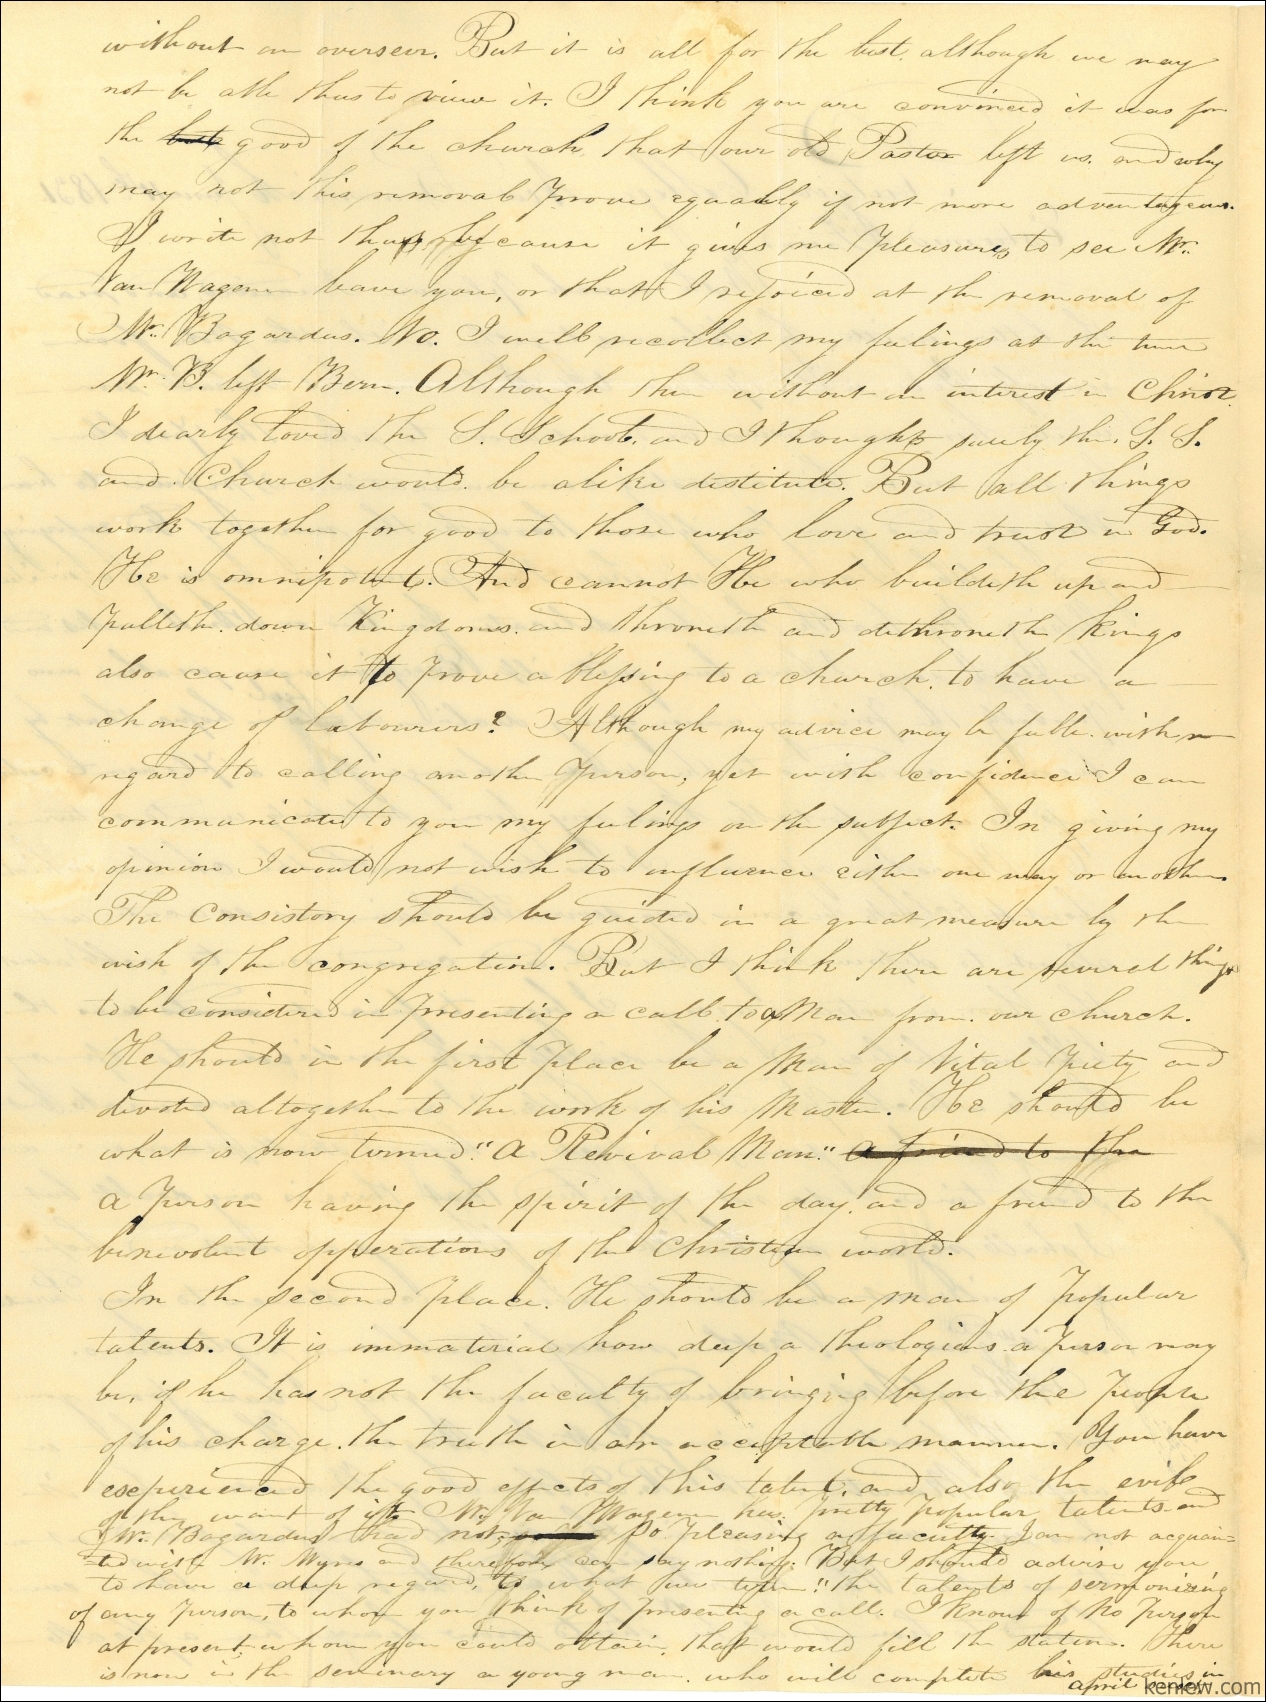 without an overseer. But it is all for the best, although we may
not be able thus to view it. I think you are convinced it was for
the best good of the church, that our old Pastor left us. and why
may not this removal prove equally if not more advantageous.
I write not thus because it gives me pleasure, to see Mr.
Van Wagenen leave you, or that I rejoiced at the removal of
Mr. Bogardus. No. I well recollect my feelings at the time
Mr. B. left Bern. Although then without an interest in Christ.
I dearly loved the S. School. and I thought surely the S. S.
and Church would be alike destitute. But all things
work together for good to those who love and trust in God.
He is omnipotent. And cannot He who buildeth up and
pulleth down Kingdoms. and throneth and dethroneth kings
also cause it to prove a blessing to a church to have a
change of labourers? Although my advice may be feble with
regard to calling another person, yet with confidence I can
communicate to you my feelings on the subject. In giving my
opinion I would not wish to influence either one way or another.
The Consistory should be guided in a great measure by the
wish of the congregation. But I think there are several things
to be considered in presenting a call to a Man from our church.
He should in the first place be a Man of Vital Piety and
devoted altogether to the work of his Master. He should be
what is now termed "A Revival Man." a friend to the
a person having the spirit of the day. and a friend to the
benevolent opperations of the Christian world.
In the second place. He should be a man of popular
talents. It is immaterial how deep a theologian a person may
be, if he has not the faculty of bringing before the people
of his charge. the truth in an acceptable manner. You have
experienced the good effects of this talent, and also the evils
of the want of it. Mr. Van Wagenen has pretty popular talents and
Mr. Bogardus had not so pleasing a faculty. I am not acquain=
=ted with Mr. Wynes and therefore can say nothing. But I should advise you
to have a deep regard, to what we term "the talents of sermonizing
of any person, to whom you think of presenting a call. I know of no person
at present, whom you could obtain, that would fill the station. There
is now in the seminary a young man who will complete his studies in
april
1831
kenlew.com